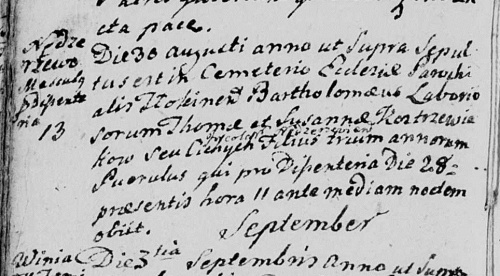 cta pace.
Nodze
rzewo
Masculq
pdisenteria
13
Die 30 augusti anno ut supra Sepul
tus est in Cemeterio Ecclesiæ Parochi
alis Bartholomæus Laborio
sorum Thomæ et Susannæ Kostrzewia
kow seu Cichych Filius trium annorum
Puerulus qui pro Disenteria Die 28a
præsentis hora 11 ante mediam noctem
obiit.
September
Winia
Die 3tia Septembris anno ut supra